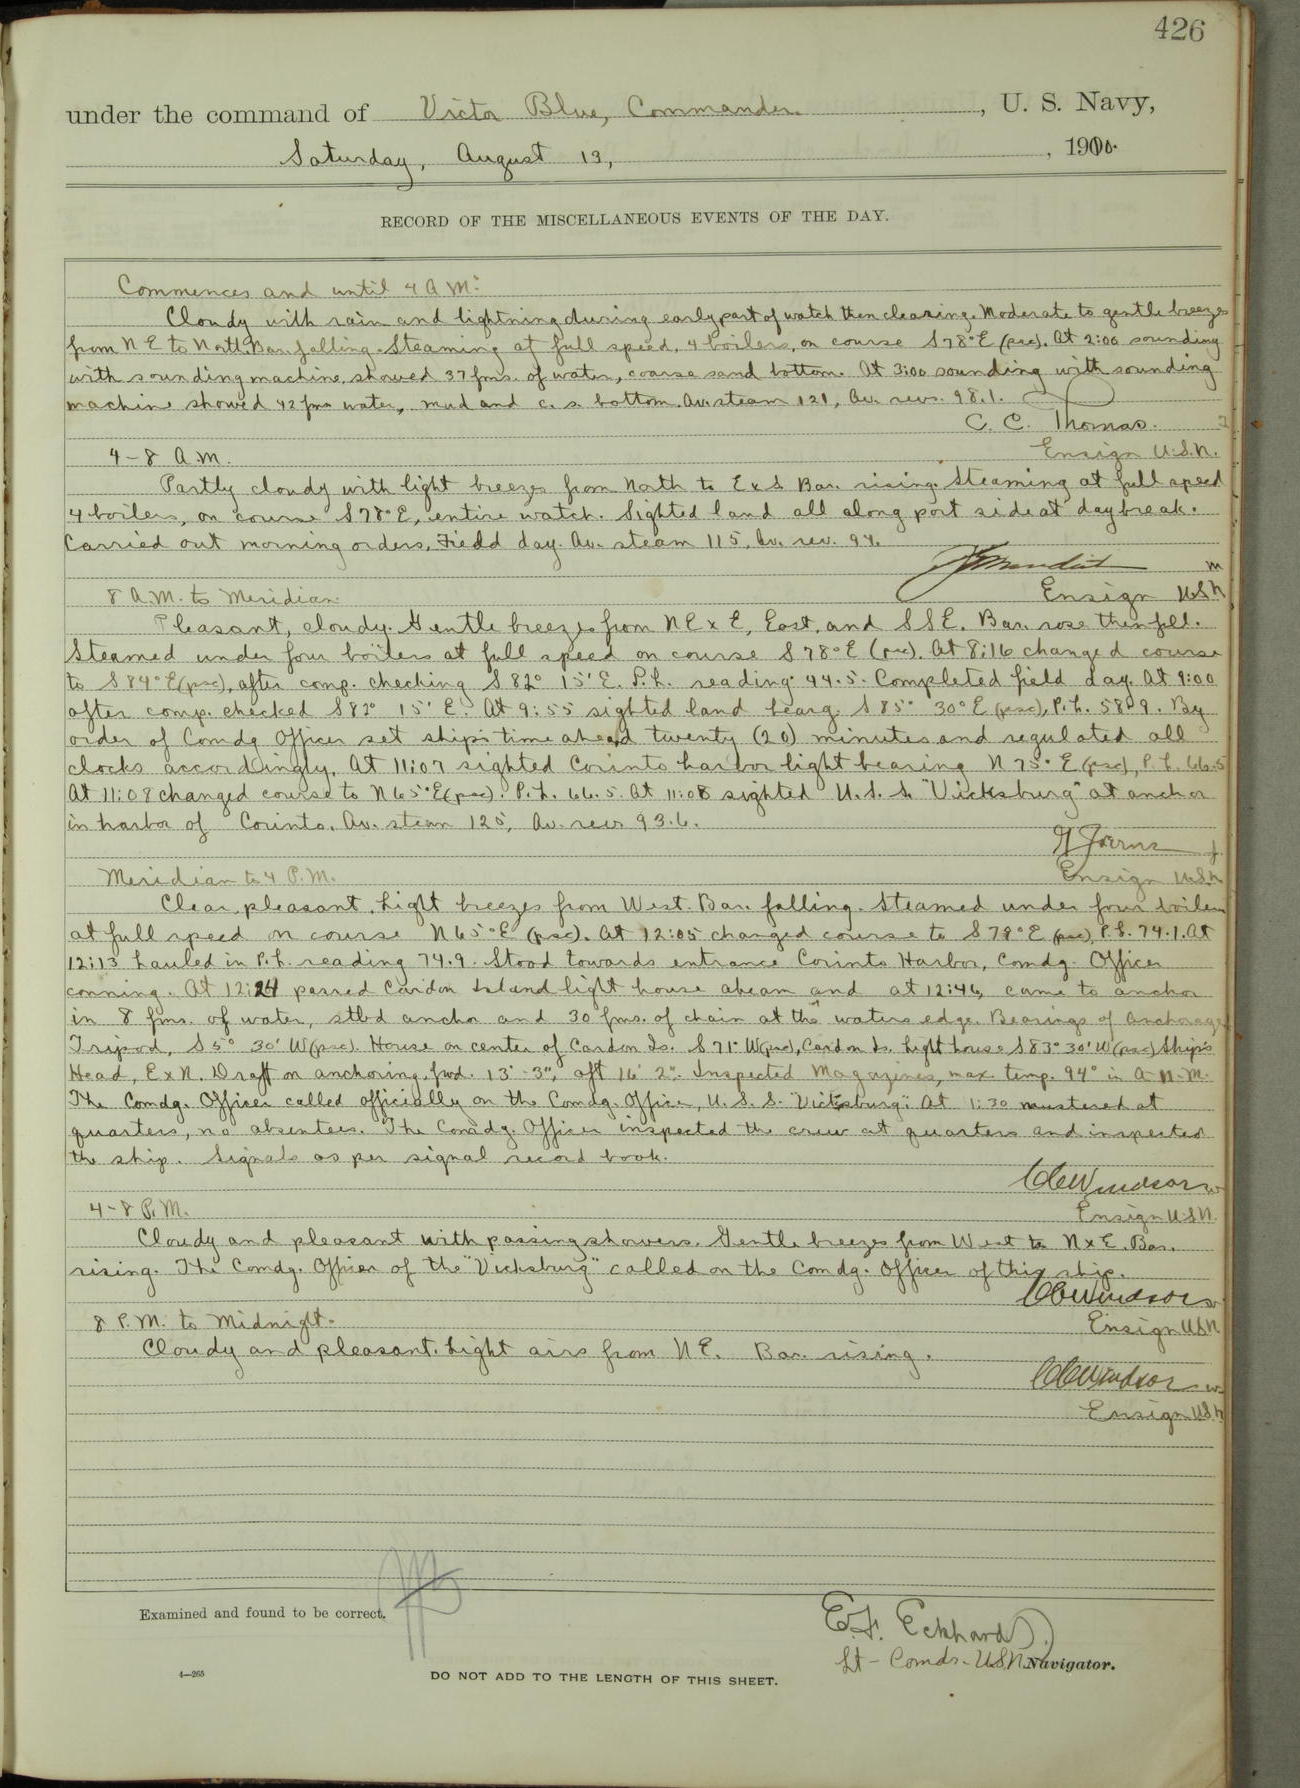 426
under the command of Victor Blue, Commander, U. S. Navy,
Saturday, August 13, , 1910.
RECORD OF THE MISCELLANEOUS EVENTS OF THE DAY.
Commences and until 4 A.M:
Cloudy with rain and lightning during early part of watch then clearing. Moderate to gentle breezes
from NE to North. Bar. falling. Steaming at full speed, 4 boilers, on course S78°E (psc). At 2:00 sounding
with sounding machine, showed 37 fms. of water, coarse sand bottom. At 3:00 sounding with sounding
machine showed 42 fms water, mud and c. s. bottom. Av. steam 121, Av. revs. 98.1.
C. C. Thomas.
Ensign U.S.N.
4-8 A.M.
Partly cloudy with light breezes from North to ExS. Bar. rising. Steaming at full speed
4 boilers, on course S78°E, entire watch. Sighted land all along port side at daybreak.
Carried out morning orders, Field day. Av. steam 115, Av. rev. 97.
Ensign USN
8 A.M. to Meridian.
Pleasant, cloudy. Gentle breezes from NExE, East, and SSE. Bar. rose then fell.
Steamed under four boilers at full speed on course S78°E (psc). At 8:16 changed course
to S84°E (psc), after comp. checking S82° 15'E. P.L. reading 44.5. Completed field day. At 9:00
after comp. checked S82° 15' E. At 9:55 sighted land bearg. S85° 30°E (psc), P.L. 58.9. By
order of Comdg Officer set ship's time ahead twenty (20) minutes and regulated all
clocks accordingly. At 11:07 sighted Corinto harbor light bearing N75°E (psc), P.L. 66.5
At 11:08 changed course to N65°E (psc). P.L. 66.5. At 11:08 sighted U.S.S. "Vicksburg" at anchor
in harbor of Corinto. Av. steam 125, Av. revs 93.6.
Ensign USN
Meridian to 4 P.M.
Clear, pleasant. Light breezes from West. Bar. falling. Steamed under four boilers
at full speed on course N65°E (psc). At 12:05 changed course to S79°E (psc), P.L. 74.1. At
12:13 hauled in P.L. reading 74.9. Stood towards entrance Corinto Harbor, Comdg. Officer
conning. At 12:24 passed Cardon Island light house abeam and at 12:46, came to anchor
in 8 fms. of water, stbd anchor and 30 fms. of chain at the waters edge. Bearings of anchorage
Tripod, S5° 30' W (psc). House on center of Cardon Is. S71°W (psc), Cardon Is. Light house S83°30'W (psc) Ship's
Head, ExN. Draft on anchoring, fwd. 13'-3", aft 16' 2". Inspected Magazines, max temp. 94° in A-11-M.
The Comdg. Officer called officially on the Comdg. Officer, U.S.S. "Vicksburg". At 1:30 mustered at
quarters, no absentees. The Comdg. Officer inspected the crew at quarters and inspected
the ship. Signals as per signal record book.
CC Windsor
Ensign USN.
4-8 P.M.
Cloudy and pleasant with passing showers. Gentle breezes from West to NxE. Bar.
rising. The Comdg. Officer of the "Vicksburg" called on the Comdg. Officer of this ship.
CC Windsor
Ensign USN
8 P.M. to Midnight.
Cloudy and pleasant. Light airs from NE. Bar. rising.
CC Windsor
Ensign USN
Examined and found to be correct.
E.F. Eckhardt
Lt-Comdr-USN Navigator.
4—265
DO NOT ADD TO THE LENGTH OF THIS SHEET.